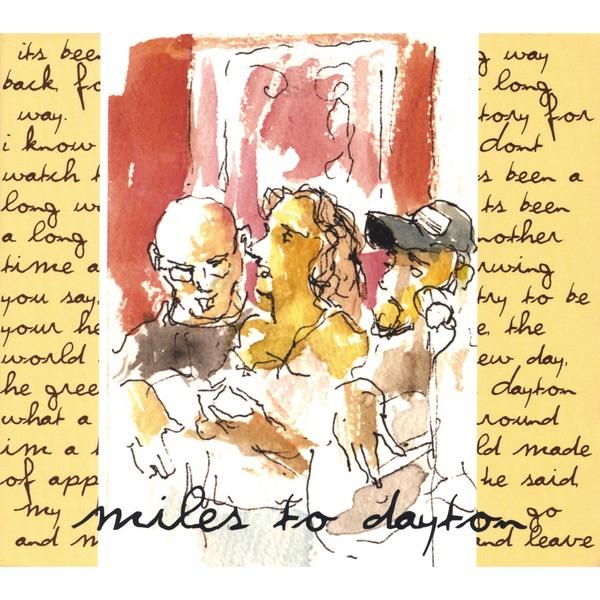 its bee g way
back fo long
way. tory for
i know dont
watch t s been a
long w ts been
a long nother
time a rwing
you say, try to be
your he e the
world ew day.
he gree dayton
what a round
im a l ld made
of app he said,
my go
miles to dayton
and m and leave